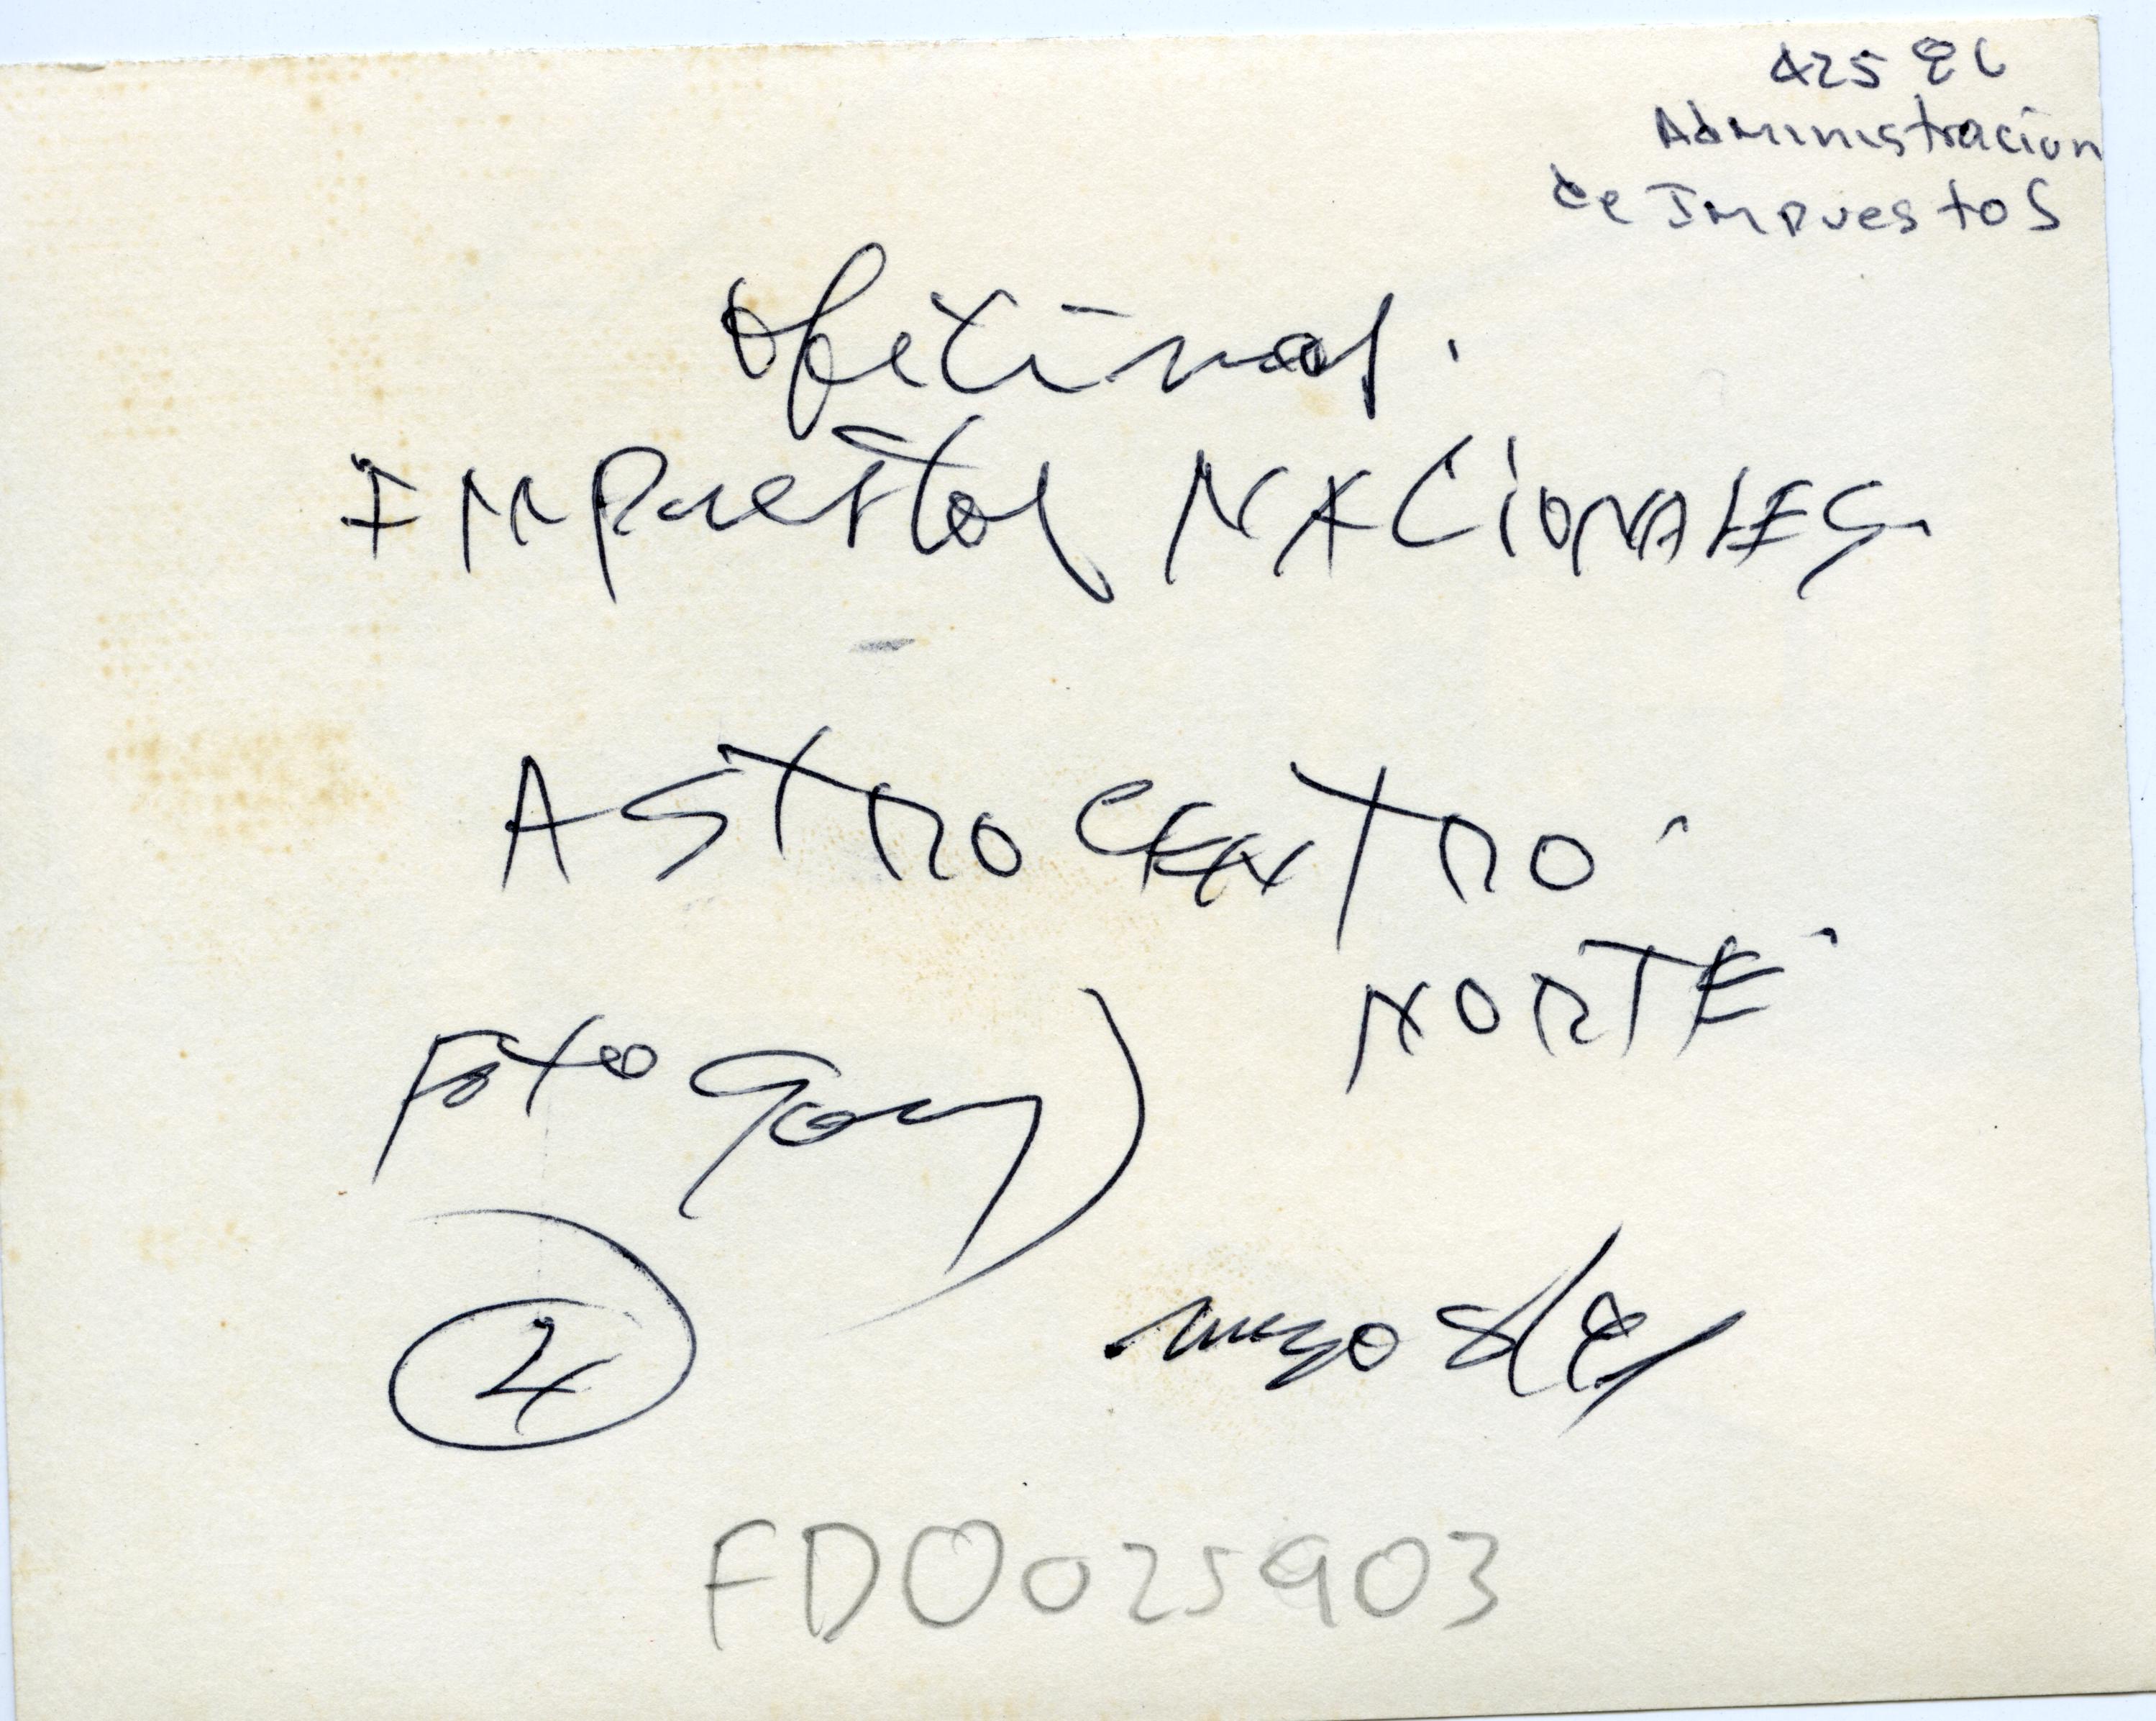 Administracion
de Impuestos
Oficinas.
Impuestos NACiONALES
ASTROCENTRO
NORTE
Foto Gary
2
mayo
FD0025903